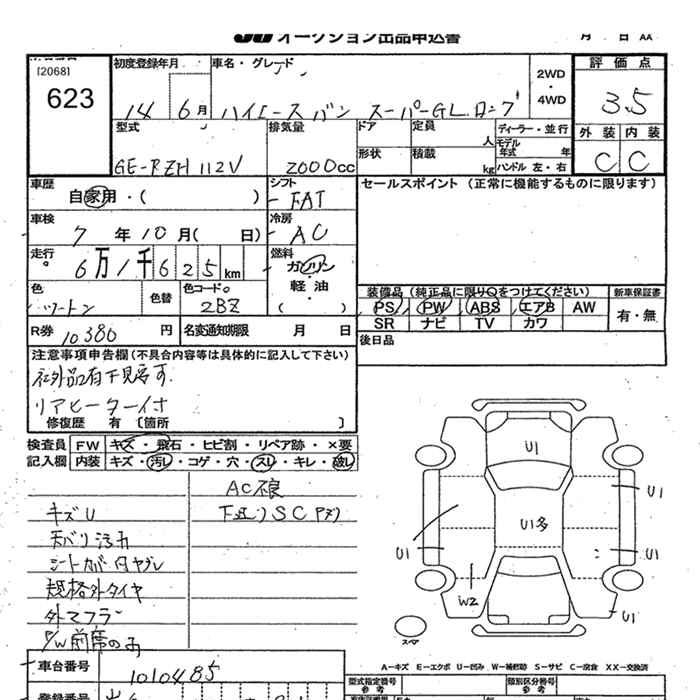 オークション出品申込書
月 日 AA
[2068]
623
初度登録年月
14 6月
車名・グレード
ハイエースバン スーパーGL.ロング
2WD
・
4WD
評価点
3.5
外装 内装
C C
型式
GE-RZH112V
排気量
2000cc
ドア
定員
人
形状
積載
kg
ディーラー・並行
モデル年式 年
ハンドル 左・右
車歴
自家用・( )
シフト
FAT
セールスポイント (正常に機能するものに限ります)
車検
7年10月( 日)
冷房
AC
走行
6万1千625km
燃料
ガソリン
軽油
( )
色
ツートン
色替
色コードo
2BZ
装備品(純正品に限りQをつけてください)
新車保証書
PS PW ABS エアB AW
SR ナビ TV カワ
有・無
R券 10380円
名変通知期限 月 日
後日品
注意事項申告欄(不具合内容等は具体的に記入して下さい)
社外品有下見寄す.
リアヒーター付
修復歴 有 〔箇所 〕
検査員 FW キズ・飛石・ヒビ割・リペア跡・×要
記入欄 内装 キズ・汚れ・コゲ・穴・スレ・キレ・破れ
AC不良
キズU
天バリ汚れ
シートカバー内ヤブレ
規格外タイヤ
外マフラー
P/W前席のみ
U1
U1
U1多
U1
U1
W2
U1
スペア
A-キズ E-エクボ U-凹み W-補修跡 S-サビ C-腐食 XX-交換済
車台番号
1010485
型式指定番号
参考
類別区分番号
参考
登録番号